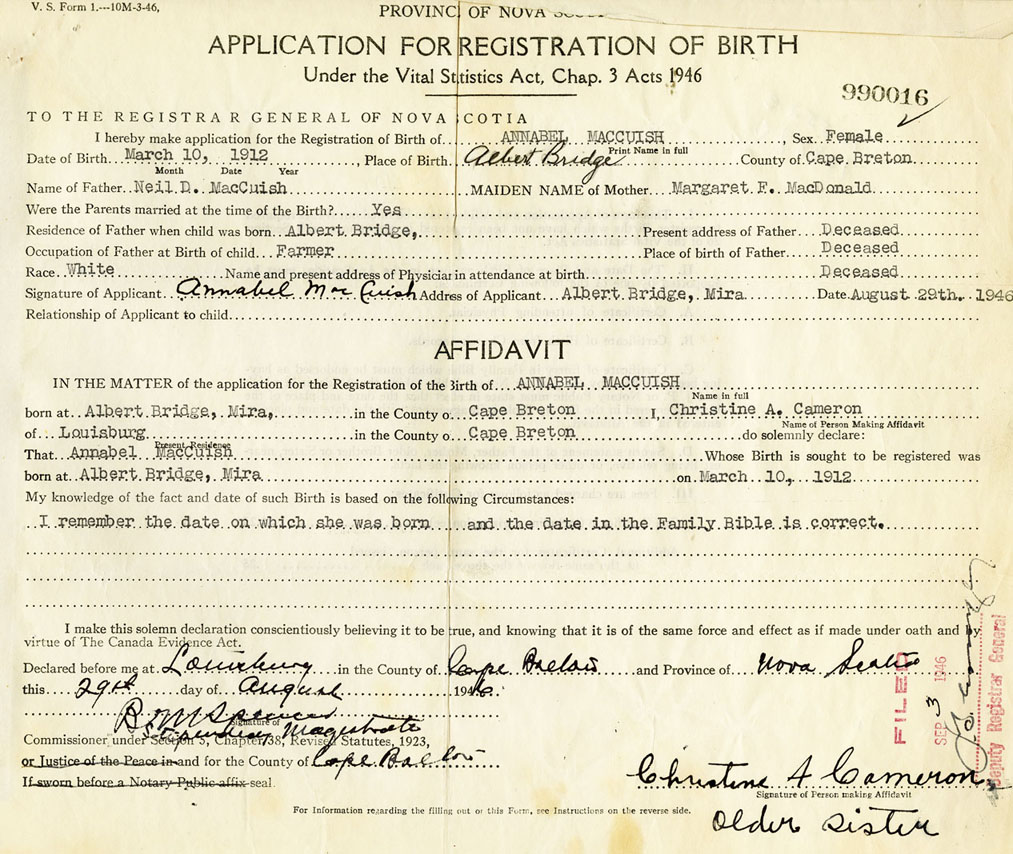 V. S. Form 1.---10M-3-46,
PROVINC OF NOVA
APPLICATION FOR REGISTRATION OF BIRTH
Under the Vital Statistics Act, Chap. 3 Acts 1946
990016
TO THE REGISTRAR GENERAL OF NOVA SCOTIA
I hereby make application for the Registration of Birth of ANNABEL MACCUISH, Sex Female
Print Name in full
Date of Birth March 10, 1912, Place of Birth Albert Bridge County of Cape Breton
Month Date Year
Name of Father Neil D. MacCuish MAIDEN NAME of Mother Margaret F. MacDonald
Were the Parents married at the time of the Birth? Yes
Residence of Father when child was born Albert Bridge, Present address of Father Deceased
Occupation of Father at Birth of child Farmer Place of birth of Father Deceased
Race White Name and present address of Physician in attendance at birth Deceased
Signature of Applicant Annabel MacCuish Address of Applicant Albert Bridge, Mira Date August 29th. 1946
Relationship of Applicant to child
AFFIDAVIT
IN THE MATTER of the application for the Registration of the Birth of ANNABEL MACCUISH
Name in full
born at Albert Bridge, Mira, in the County of Cape Breton I, Christine A. Cameron
Name of Person Making Affidavit
of Louisburg in the County of Cape Breton do solemnly declare:
Present Residence
That Annabel MacCuish Whose Birth is sought to be registered was
born at Albert Bridge, Mira on March 10, 1912
My knowledge of the fact and date of such Birth is based on the following Circumstances:
I remember the date on which she was born and the date in the Family Bible is correct.
I make this solemn declaration conscientiously believing it to be true, and knowing that it is of the same force and effect as if made under oath and by
virtue of The Canada Evidence Act.
Declared before me at Louisburg in the County of Cape Breton and Province of Nova Scotia
this 29th day of August 1946.
Signature of
Stipendiary Magistrate
Commissioner under Section 3, Chapter 38, Revised Statutes, 1923,
or Justice of the Peace in and for the County of Cape Breton
If sworn before a Notary Public affix seal.
Christine A Cameron
Signature of Person making Affidavit
older sister
For Information regarding the filling out of this Form, see Instructions on the reverse side.
FILED
SEP 3 1946
Deputy Registrar General